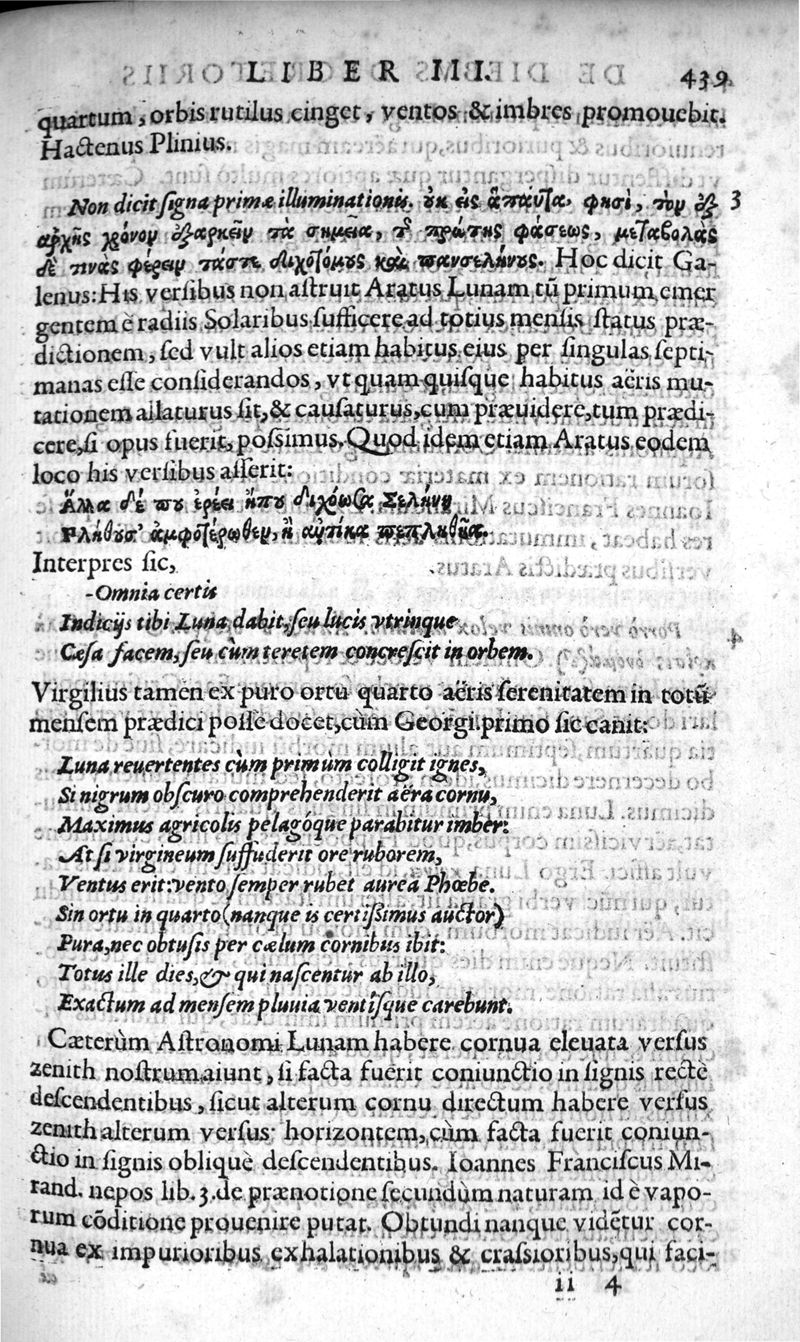 LIBER III. 439
quartum, orbis rutilus cinget, ventos & imbres promouebit.
Hactenus Plinius.
Non dicit signa primæ illuminationis. ὐκ εἰς ἅπαντα, φησὶ, τὸν ἐξ 3
ἀρχῆς χρόνον ἐξαρκεῖν τὰ σημεῖα, τ͂ πρώτης φάσεως, μεταβολὰς
δέ τινὰς φέρειν τάς τε διχοτόμους καὶ πανσελήνους. Hoc dicit Ga-
lenus: His versibus non astruit Aratus Lunam tū primum emer
gentem è radiis Solaribus sufficere ad totius mensis status præ-
dictionem, sed vult alios etiam habitus eius per singulas septi-
manas esse considerandos, vt quam quisque habitus aëris mu-
tationem allaturus sit, & causaturus, cum præuidere, tum prædi-
cere, si opus fuerit, possimus. Quod idem etiam Aratus eodem
loco his versibus asserit:
Ἄλλα δέ που ἐρέει ἤπου διχόωσα Σελήνη
Πλήθουσ' ἀμφοτέρωθεν, ἢ αὐτίκα πεπληθῦα.
Interpres sic,
-Omnia certis
Indicijs tibi Luna dabit, seu lucis vtrinque
Cæsa facem, seu cùm teretem concrescit in orbem.
Virgilius tamen ex puro ortu quarto aëris serenitatem in totū
mensem prædici posse docet, cùm Georgi. primo sic canit:
Luna reuertentes cùm primùm colligit ignes,
Si nigrum obscuro comprehenderit aëra cornu,
Maximus agricolis pelagóque parabitur imber:
At si virgineum suffuderit ore ruborem,
Ventus erit: vento semper rubet aurea Phœbe.
Sin ortu in quarto (nanque is certissimus auctor)
Pura, nec obtusis per cælum cornibus ibit:
Totus ille dies, & qui nascentur ab illo,
Exactum ad mensem pluuia ventísque carebunt.
Cæterùm Astronomi Lunam habere cornua eleuata versus
zenith nostrum aiunt, si facta fuerit coniunctio in signis rectè
descendentibus, sicut alterum cornu directum habere versus
zenith alterum versus horizontem, cùm facta fuerit coniun-
ctio in signis obliquè descendentibus. Ioannes Franciscus Mi-
rand. nepos lib. 3. de prænotione secundùm naturam id è vapo-
rum cōditione prouenire putat. Obtundi nanque vidētur cor-
nua ex impurioribus exhalationibus & crassioribus, qui faci-
ii 4